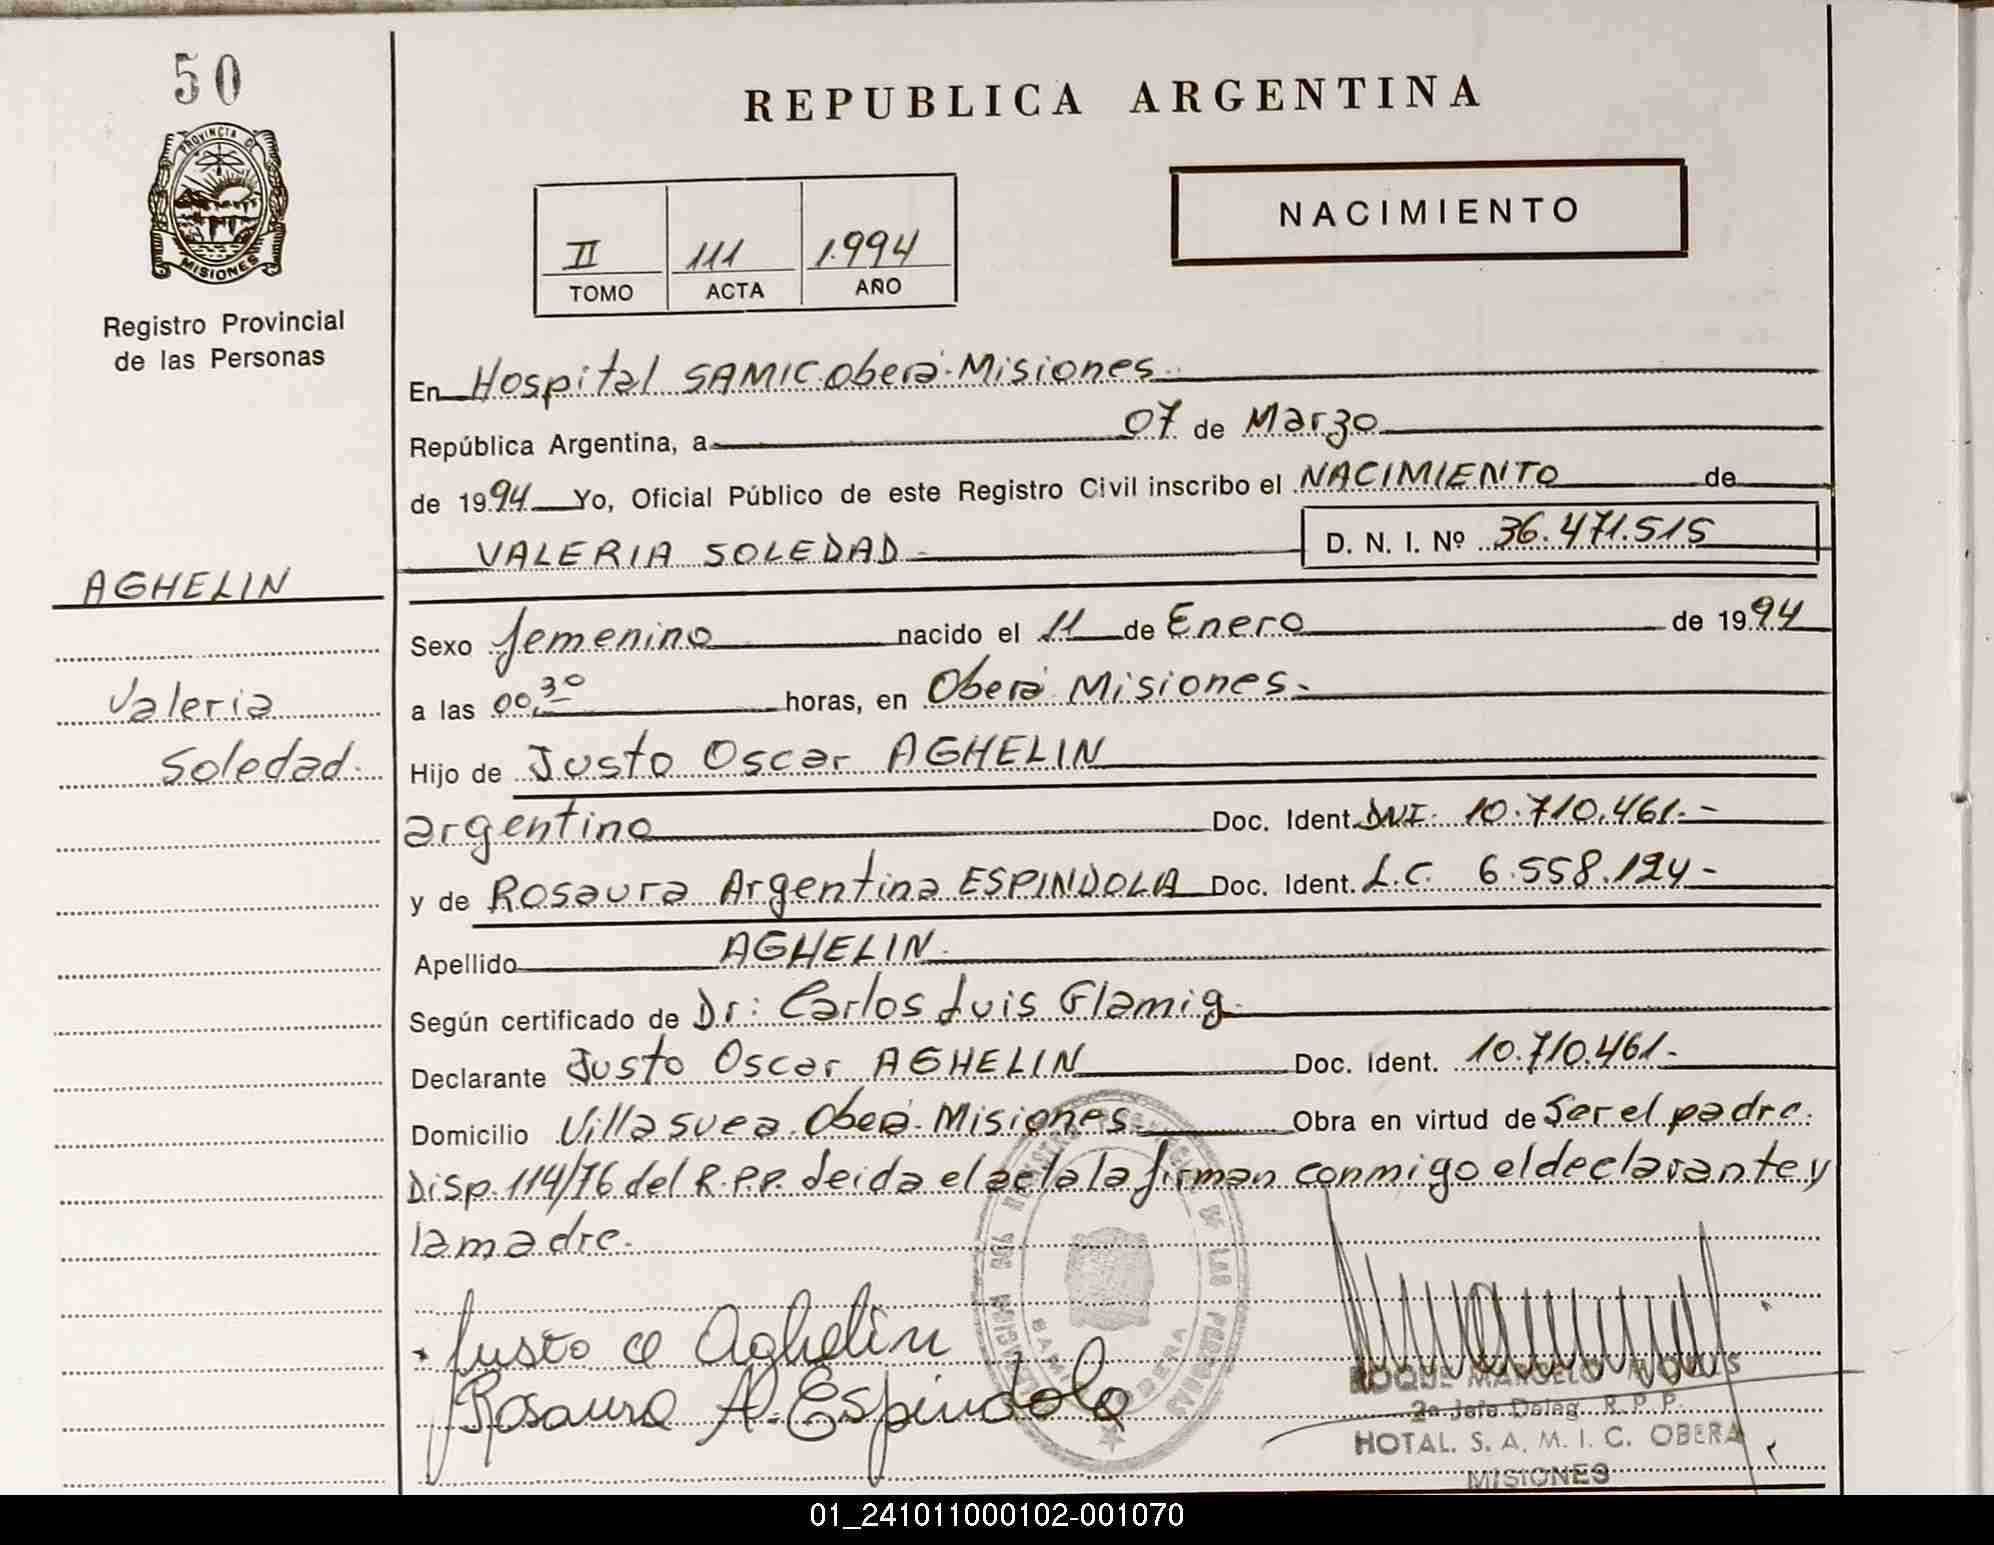 50
PROVINCIA DE
MISIONES
Registro Provincial
de las Personas
REPUBLICA ARGENTINA
II 111 1.994
TOMO ACTA AÑO
NACIMIENTO
En Hospital SAMIC Oberá-Misiones.
República Argentina, a 07 de Marzo
de 1994 Yo, Oficial Público de este Registro Civil inscribo el NACIMIENTO de
VALERIA SOLEDAD- D. N. I. Nº 36.471.515
AGHELIN
Valeria
Soledad.
Sexo femenino nacido el 11 de Enero de 1994
a las 00,30 horas, en Oberá Misiones-
Hijo de Justo Oscar AGHELIN
argentino Doc. Ident. DNI. 10.710.461.-
y de Rosaura Argentina ESPINDOLA Doc. Ident. L.C. 6.558.124-
Apellido AGHELIN.
Según certificado de Dr: Carlos Luis Glamig.
Declarante Justo Oscar AGHELIN Doc. Ident. 10.710.461-
Domicilio Villa Svea Oberá-Misiones. Obra en virtud de Ser el padre.
Disp. 114/76 del R.P.P. Leida el acta la firman conmigo el declarante y
la madre.
Justo O Aghelin
Rosaura A. Espindola
ROQUE MARCELO
2º Jefe Deleg. R. P. P.
HOTAL. S. A. M. I. C. OBERA
MISIONES
01_241011000102-001070